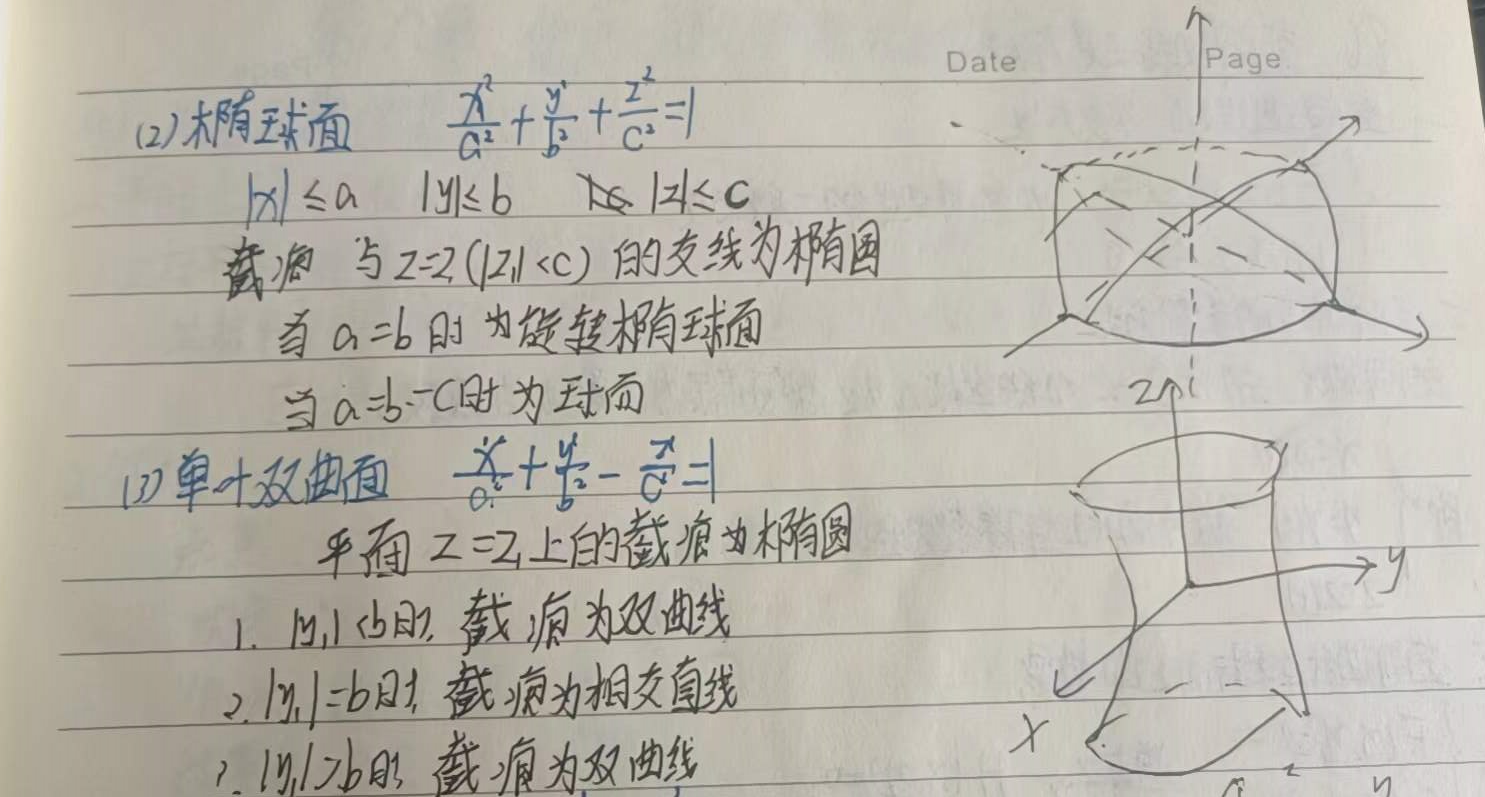 Date Page
(2) 椭球面 x²/a² + y²/b² + z²/c² = 1
|x| ≤ a |y| ≤ b |z| ≤ c
截痕 与 z=z₁ (|z₁| < c) 的交线为椭圆
当 a=b 时 为旋转椭球面
当 a=b=c 时 为球面
(3) 单叶双曲面 x²/a² + y²/b² - z²/c² = 1
平面 z=z₁ 上的截痕为椭圆
1. |y₁| < b 时, 截痕为双曲线
2. |y₁| = b 时, 截痕为相交直线
3. |y₁| > b 时, 截痕为双曲线
z
y
x